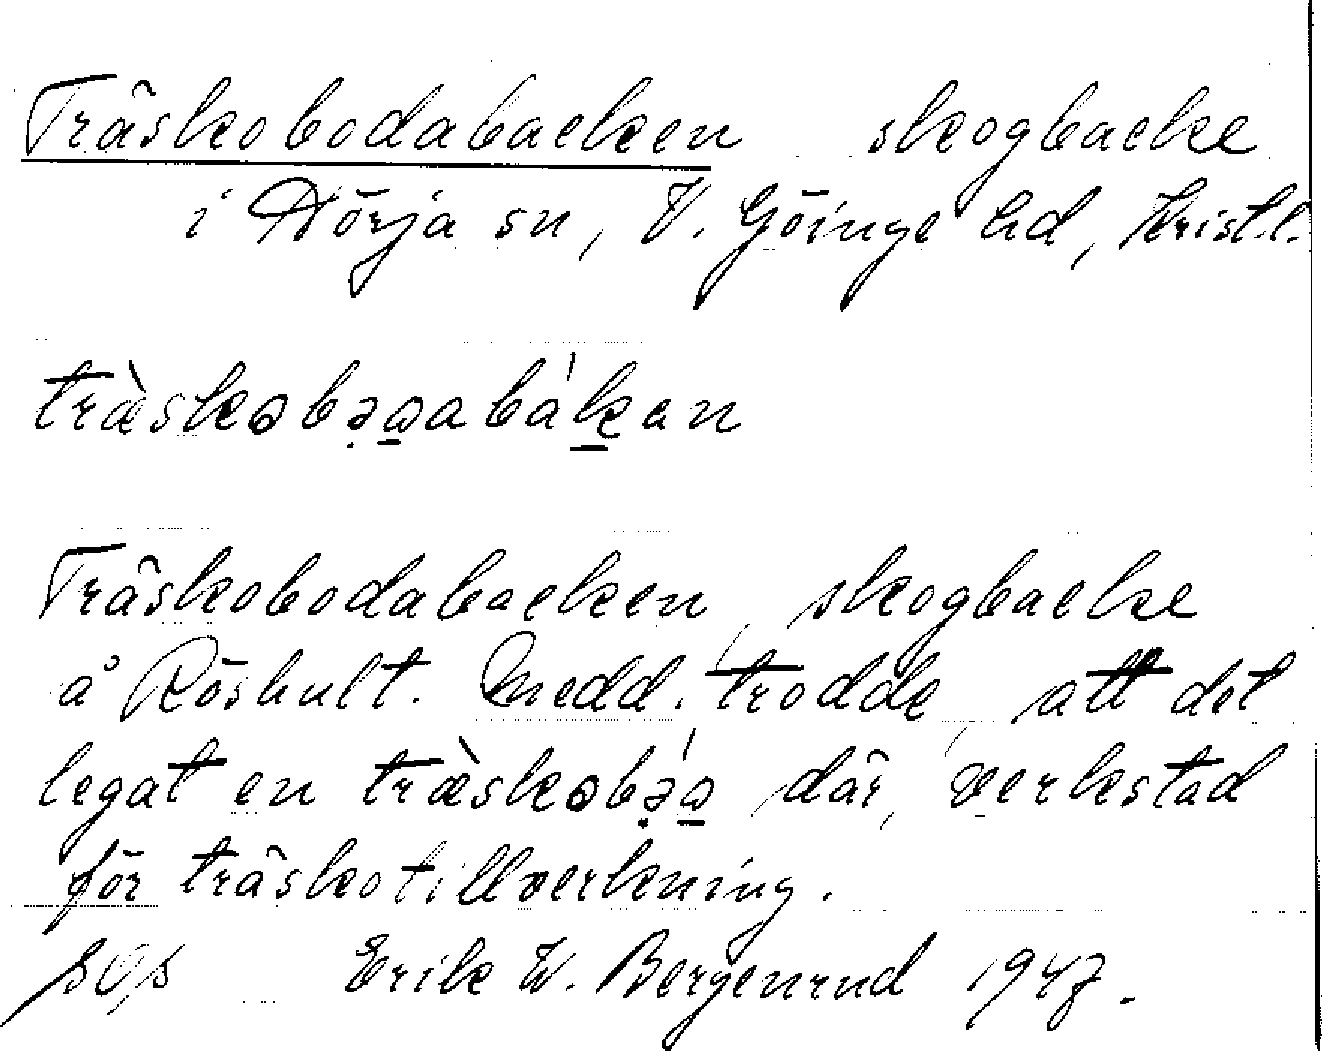 Träskobodabacken skogbacke
i Nörja sn, V. Göinge hd, Krist.l.
Träskobodabacken, skogbacke
å Röshult. Medd. trodde, att det
legat en där, verkstad
för träskotillverkning.
Erik W. Bergenrud 1947.